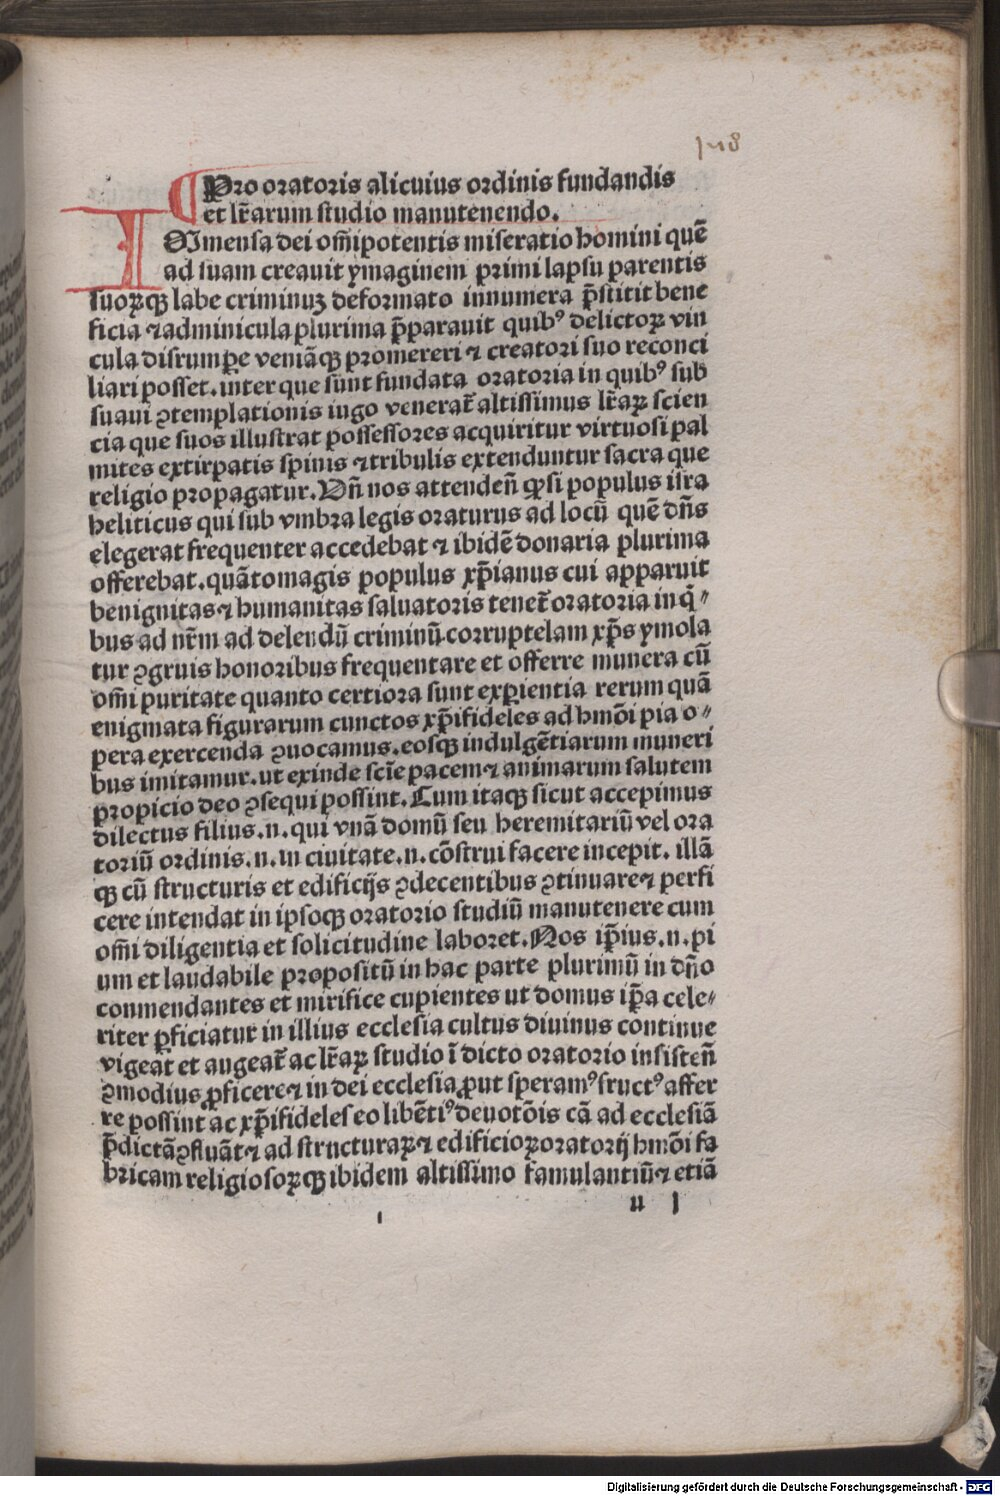 148
¶ Pro oratoris alicuius ordinis fundandis
et lr̃arum studio manutenendo.
IMmensa dei om̃ipotentis miseratio homini quẽ
ad suam creauit ymaginem primi lapsu parentis
suoꝝqꝫ labe criminuꝫ deformato innumera p̃stitit bene
ficia ⁊ adminicula plurima p̃parauit quibꝰ delictoꝝ vin
cula disrumꝑe veniãqꝫ promereri ⁊ creatori suo reconci
liari posset. inter que sunt fundata oratoria in quibꝰ sub
suaui ꝯtemplationis iugo venerat̃ altissimus lr̃aꝝ scien
cia que suos illustrat possessores acquiritur virtuosi pal
mites extirpatis spinis ⁊ tribulis extenduntur sacra que
religio propagatur. Dñ nos attendeñ ꝙ si populus isra
heliticus qui sub vmbra legis oraturus ad locũ quẽ dñs
elegerat frequenter accedebat ⁊ ibidẽ donaria plurima
offerebat. quãtomagis populus xp̃ianus cui apparuit
benignitas ⁊ humanitas saluatoris tenet̃ oratoria in q̃⸗
bus ad nr̃m ad delendũ criminũ corruptelam xp̃s ymola
tur ꝯgruis honoribus frequentare et offerre munera cũ
om̃i puritate quanto certiora sunt exꝑientia rerum quã
enigmata figurarum cunctos xp̃ifideles ad hmõi pia o⸗
pera exercenda ꝯuocamus. eosqꝫ indulgẽtiarum muneri
bus imitamur. ut exinde scĩe pacem ⁊ animarum salutem
propicio deo ꝯsequi possint. Cum itaqꝫ sicut accepimus
dilectus filius. n. qui vnã domũ seu heremitariũ vel ora
toriũ ordinis. n. in ciuitate. n. cõstrui facere incepit. illã
qꝫ cũ structuris et edificijs ꝯdecentibus ꝯtinuare ⁊ perfi
cere intendat in ipsoqꝫ oratorio studiũ manutenere cum
om̃i diligentia et solicitudine laboret. Nos ip̃ius. n. pi
um et laudabile propositũ in hac parte plurimũ in dño
conmendantes et mirifice cupientes ut domus ip̃a cele⸗
riter ꝑficiatur in illius ecclesia cultus diuinus continue
vigeat et augeat̃ ac lr̃aꝝ studio ĩ dicto oratorio insisteñ
ꝯmodius ꝓficere ⁊ in dei ecclesia ꝓut speramꝰ fructꝰ affer
re possint ac xp̃ifideles eo libẽtiꝰ deuotõis cã ad ecclesiã
p̃dictã ꝯfluãt ⁊ ad structuraꝝ ⁊ edificioꝝ oratorij hmõi fa
bricam religiosoꝝqꝫ ibidem altissimo famulantiũ ⁊ etiã
u 1
Digitalisierung gefördert durch die Deutsche Forschungsgemeinschaft - DFG